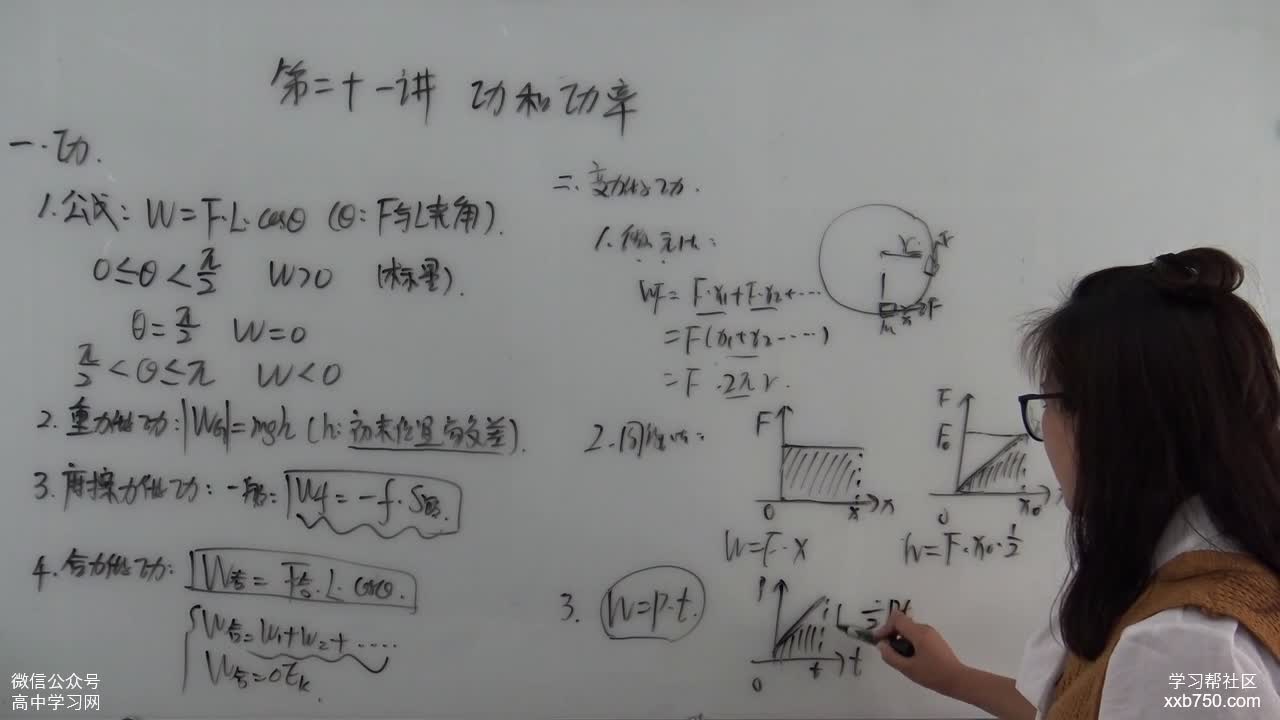 第二十一讲 功和功率
一.功.
1.公式: W=F·L·cosθ (θ: F与L夹角).
0≤θ<π/2 W>0 (标量).
θ=π/2 W=0
π/2<θ≤π W<0
2.重力做功: |WG|=mgh (h: 初末位置高度差).
3.摩擦力做功: 一般: Wf=-f·S路.
4.合力做功: W合=F合·L·cosθ.
W合=W1+W2+....
W合=△Ek
二.变力做功.
1.微元法:
WF=F·x1+F·x2+...
=F(x1+x2.....)
=F·2πr.
r
F
m
x
F
2.图像法:
F
0
x
x
W=F·x
F
F0
0
x0
W=F·x0·1/2
3. W=P·t.
P
0
t
t
微信公众号
高中学习网
学习帮社区
xxb750.com